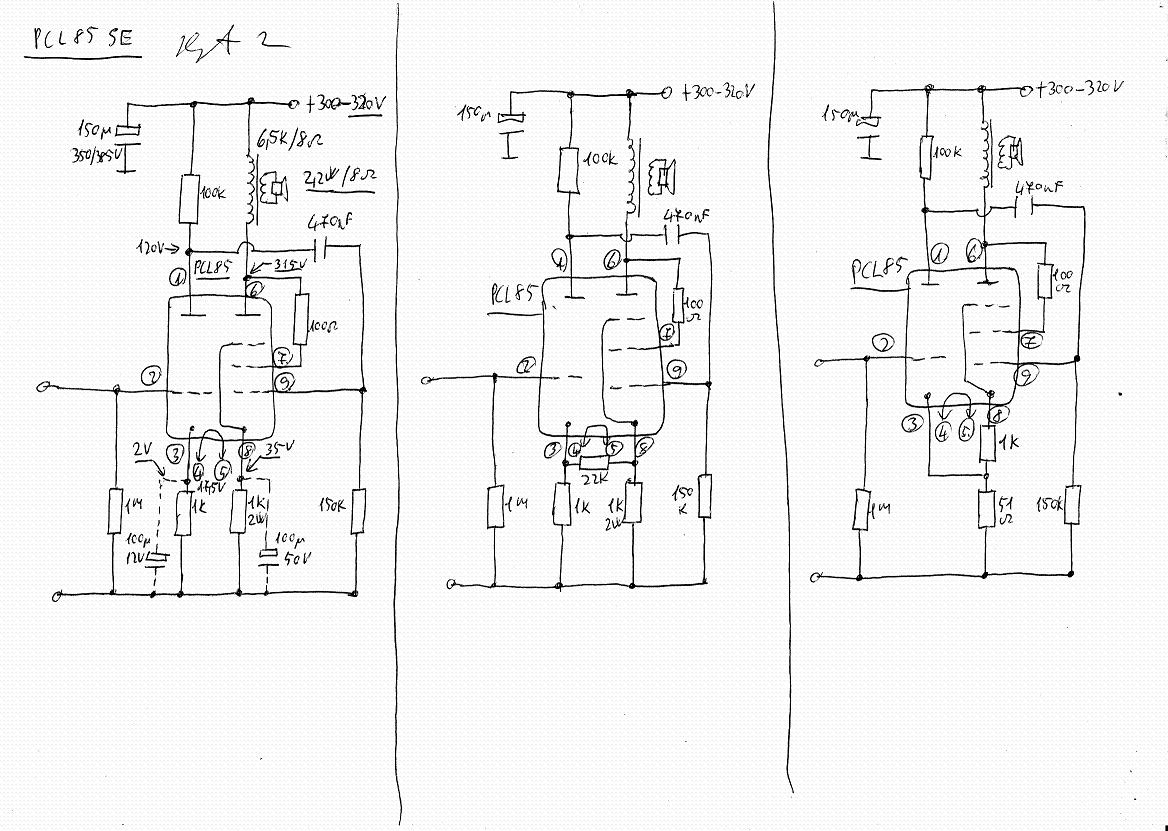 PCL85 SE
2
+300-320V
150µ
350/385V
6,5K/8Ω
2,2W/8Ω
100k
470nF
120V→
PCL85
315V
1
6
100Ω
7
9
2
3
4
5
8
2V
17,5V
35V
1M
1K
1K
2W
150K
100µ
12V
100µ
50V
+300-320V
150µ
100k
470nF
1
6
PCL85
100
Ω
7
2
9
3
4
5
8
22K
1M
1K
1K
2W
150
K
+300-320V
150µ
100k
470nF
1
6
PCL85
100
Ω
7
2
9
3
4
5
8
1K
1M
51
Ω
150k